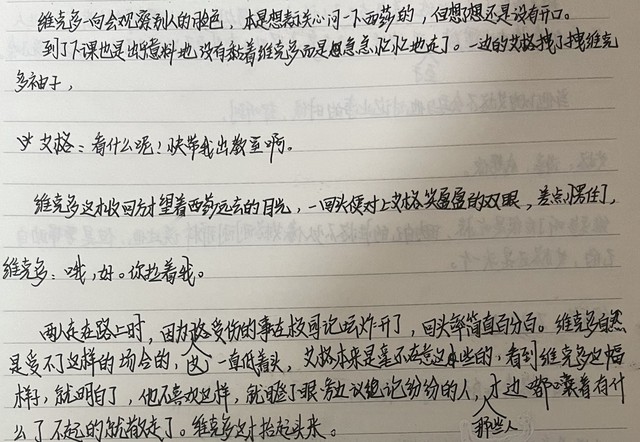 维克多一向会观察别人的脸色，本是想着关心问一下西莎的，但想了想还是没有开口。
到了下课也是出乎意料地没有黏着维克多而是急急忙忙地走了。一边的艾格拽了拽维克
多袖子，
艾格：看什么呢！快带我出教室啊。
维克多这才收回方才望着西莎远去的目光，一回头便对上艾格笑盈盈的双眼，差点愣住了，
维克多：哦，好。你拉着我。
两人走在路上时，因为路受伤的事在校园论坛炸开了，回头率简直百分百。维克多自然
是受不了这样的场合的，一直低着头，艾格本来是毫不在意这些的，看到维克多这幅
样子，就明白了，他不喜欢这样，就瞪了眼旁边议论纷纷的人，那些人才边嘟囔着有什
么了不起的就散走了。维克多这才抬起头来。